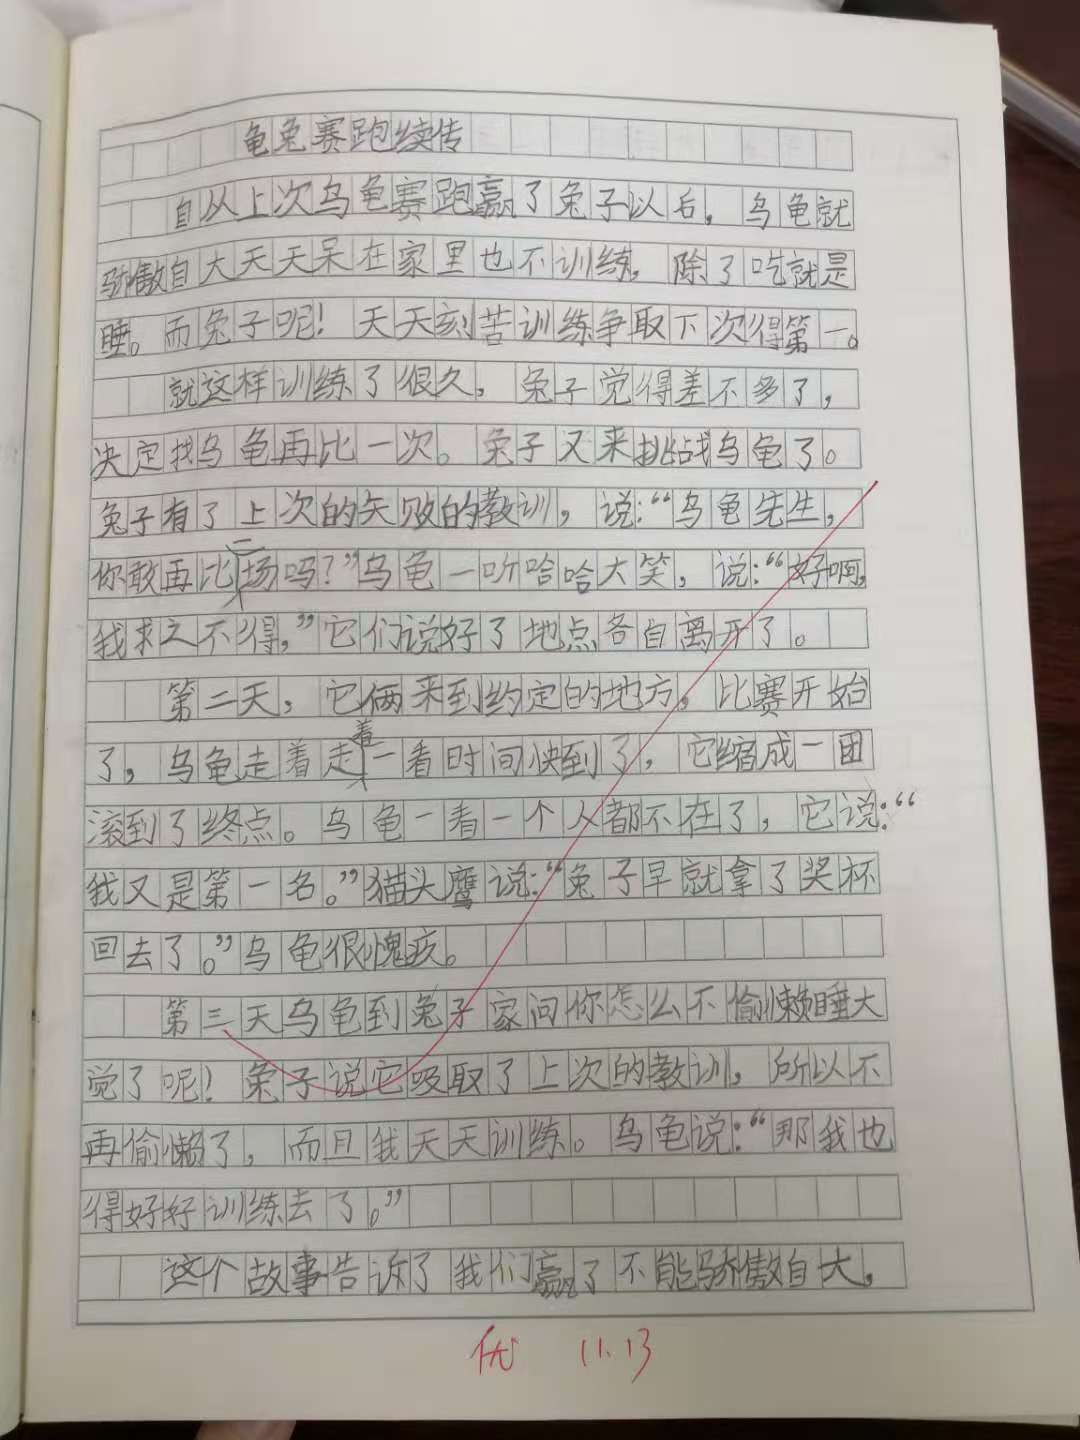 龟兔赛跑续传
自从上次乌龟赛跑赢了兔子以后，乌龟就
骄傲自大天天呆在家里也不训练，除了吃就是
睡。而兔子呢！天天刻苦训练争取下次得第一。
就这样训练了很久，兔子觉得差不多了，
决定找乌龟再比一次。兔子又来挑战乌龟了。
兔子有了上次的失败的教训，说：“乌龟先生，
你敢再比一场吗？”乌龟一听哈哈大笑，说：“好啊，
我求之不得，”它们说好了地点各自离开了。
第二天，它俩来到约定的地方，比赛开始
了，乌龟走着走着一看时间快到了，它缩成一团
滚到了终点。乌龟一看一个人都不在了，它说：“
我又是第一名。”猫头鹰说：“兔子早就拿了奖杯
回去了。”乌龟很愧疚。
第三天乌龟到兔子家问你怎么不偷懒睡大
觉了呢！兔子说它吸取了上次的教训，所以不
再偷懒了，而且我天天训练。乌龟说：“那我也
得好好训练去了。”
这个故事告诉了我们赢了不能骄傲自大，
优 11.13